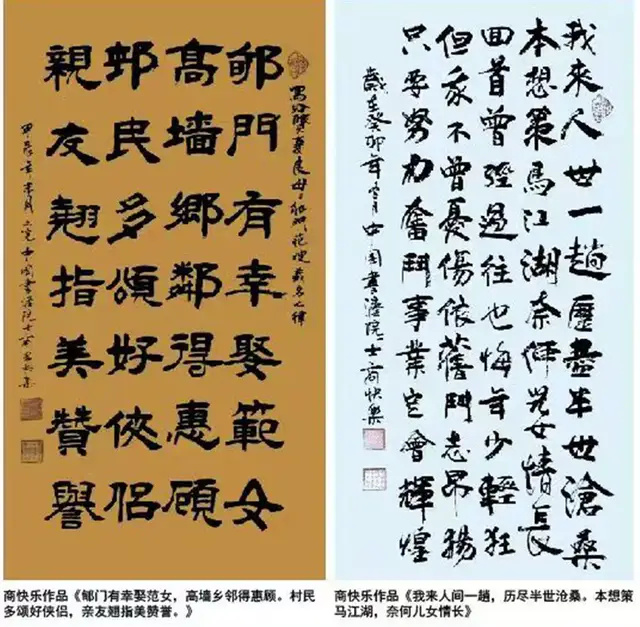 邹門有幸娶範女
髙墙鄉鄰得惠顾
邨民多頌好俠侣
親友翘指美贊譽
我来人世一趟歷盡半世滄桑
本想策馬江湖奈何児女情長
回首曾經過往也悔年少輕狂
但我不曾憂傷依舊鬥志昂揚
只要努力奮鬥事業定會輝煌
歲在癸卯年雪月中国書法院士商快樂
商快乐作品《邹门有幸娶范女，高墙乡邻得惠顾。村民
多颂好侠侣，亲友翘指美赞誉。》
商快乐作品《我来人间一趟，历尽半世沧桑。本想策
马江湖，奈何儿女情长》